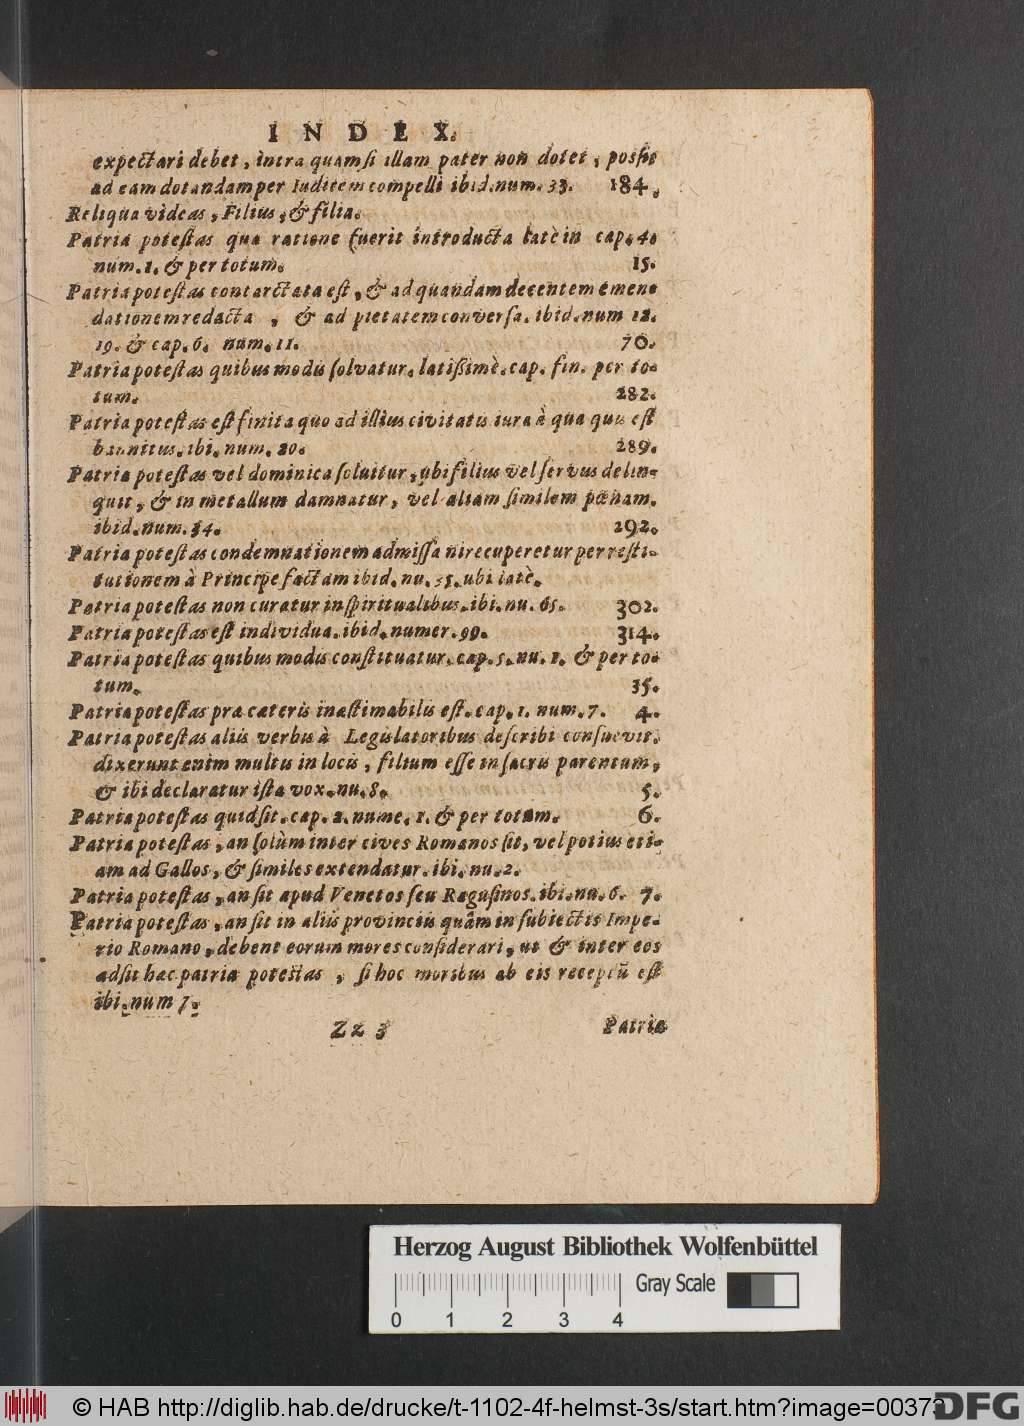 INDEX.
expectari debet, intra quam si illam pater non dotet, possit
ad eam dotandam per Iudicem compelli ibid. num. 33. 184.
Reliqua videas, Filius, & filia.
Patria potestas qua ratione fuerit introducta latè in cap. 4.
num. 1. & per totum. 15.
Patria potestas contarctata est, & ad quandam decentem emen-
dationem redacta, & ad pietatem conversa. ibid. num 12.
19. & cap. 6. num. 11. 70.
Patria potestas quibus modis solvatur. latißimè. cap. fin. per to-
tum. 282.
Patria potestas est finita quo ad illius civitatis iura à qua quis est
bannitus. ibi. num. 20. 289.
Patria potestas vel dominica soluitur, ubi filius vel servus delin-
quit, & in metallum damnatur, vel aliam similem pœnam.
ibid. num. 34. 292.
Patria potestas condemnationem admissa ni recuperetur per resti-
tutionem à Principe factam ibid. nu. 35. ubi latè.
Patria potestas non curatur in spiritualibus. ibi. nu. 65. 302.
Patria potestas est individua. ibid. numer. 99. 314.
Patria potestas quibus modis constituatur. cap. 5. nu. 1. & per to-
tum. 35.
Patria potestas præ cæteris inæstimabilis est. cap. 1. num. 7. 4.
Patria potestas aliis verbis à Legislatoribus describi consuevit.
dixerunt enim multis in locis, filium esse in sacris parentum,
& ibi declaratur ista vox. nu. 8. 5.
Patria potestas quid sit. cap. 2. nume. 1. & per totum. 6.
Patria potestas, an solùm inter cives Romanos sit, vel potius eti-
am ad Gallos, & similes extendatur. ibi. nu. 2.
Patria potestas, an sit apud Venetos seu Ragusinos. ibi. nu. 6. 7.
Patria potestas, an sit in aliis provinciis quàm in subiectis Impe-
rio Romano, debent eorum mores considerari, ut & inter eos
adsit hæc patria potestas, si hoc moribus ab eis receptũ est
ibi. num 7.
Zz 3 Patria
Herzog August Bibliothek Wolfenbüttel
Gray Scale
0 1 2 3 4
© HAB http://diglib.hab.de/drucke/t-1102-4f-helmst-3s/start.htm?image=00373
DFG